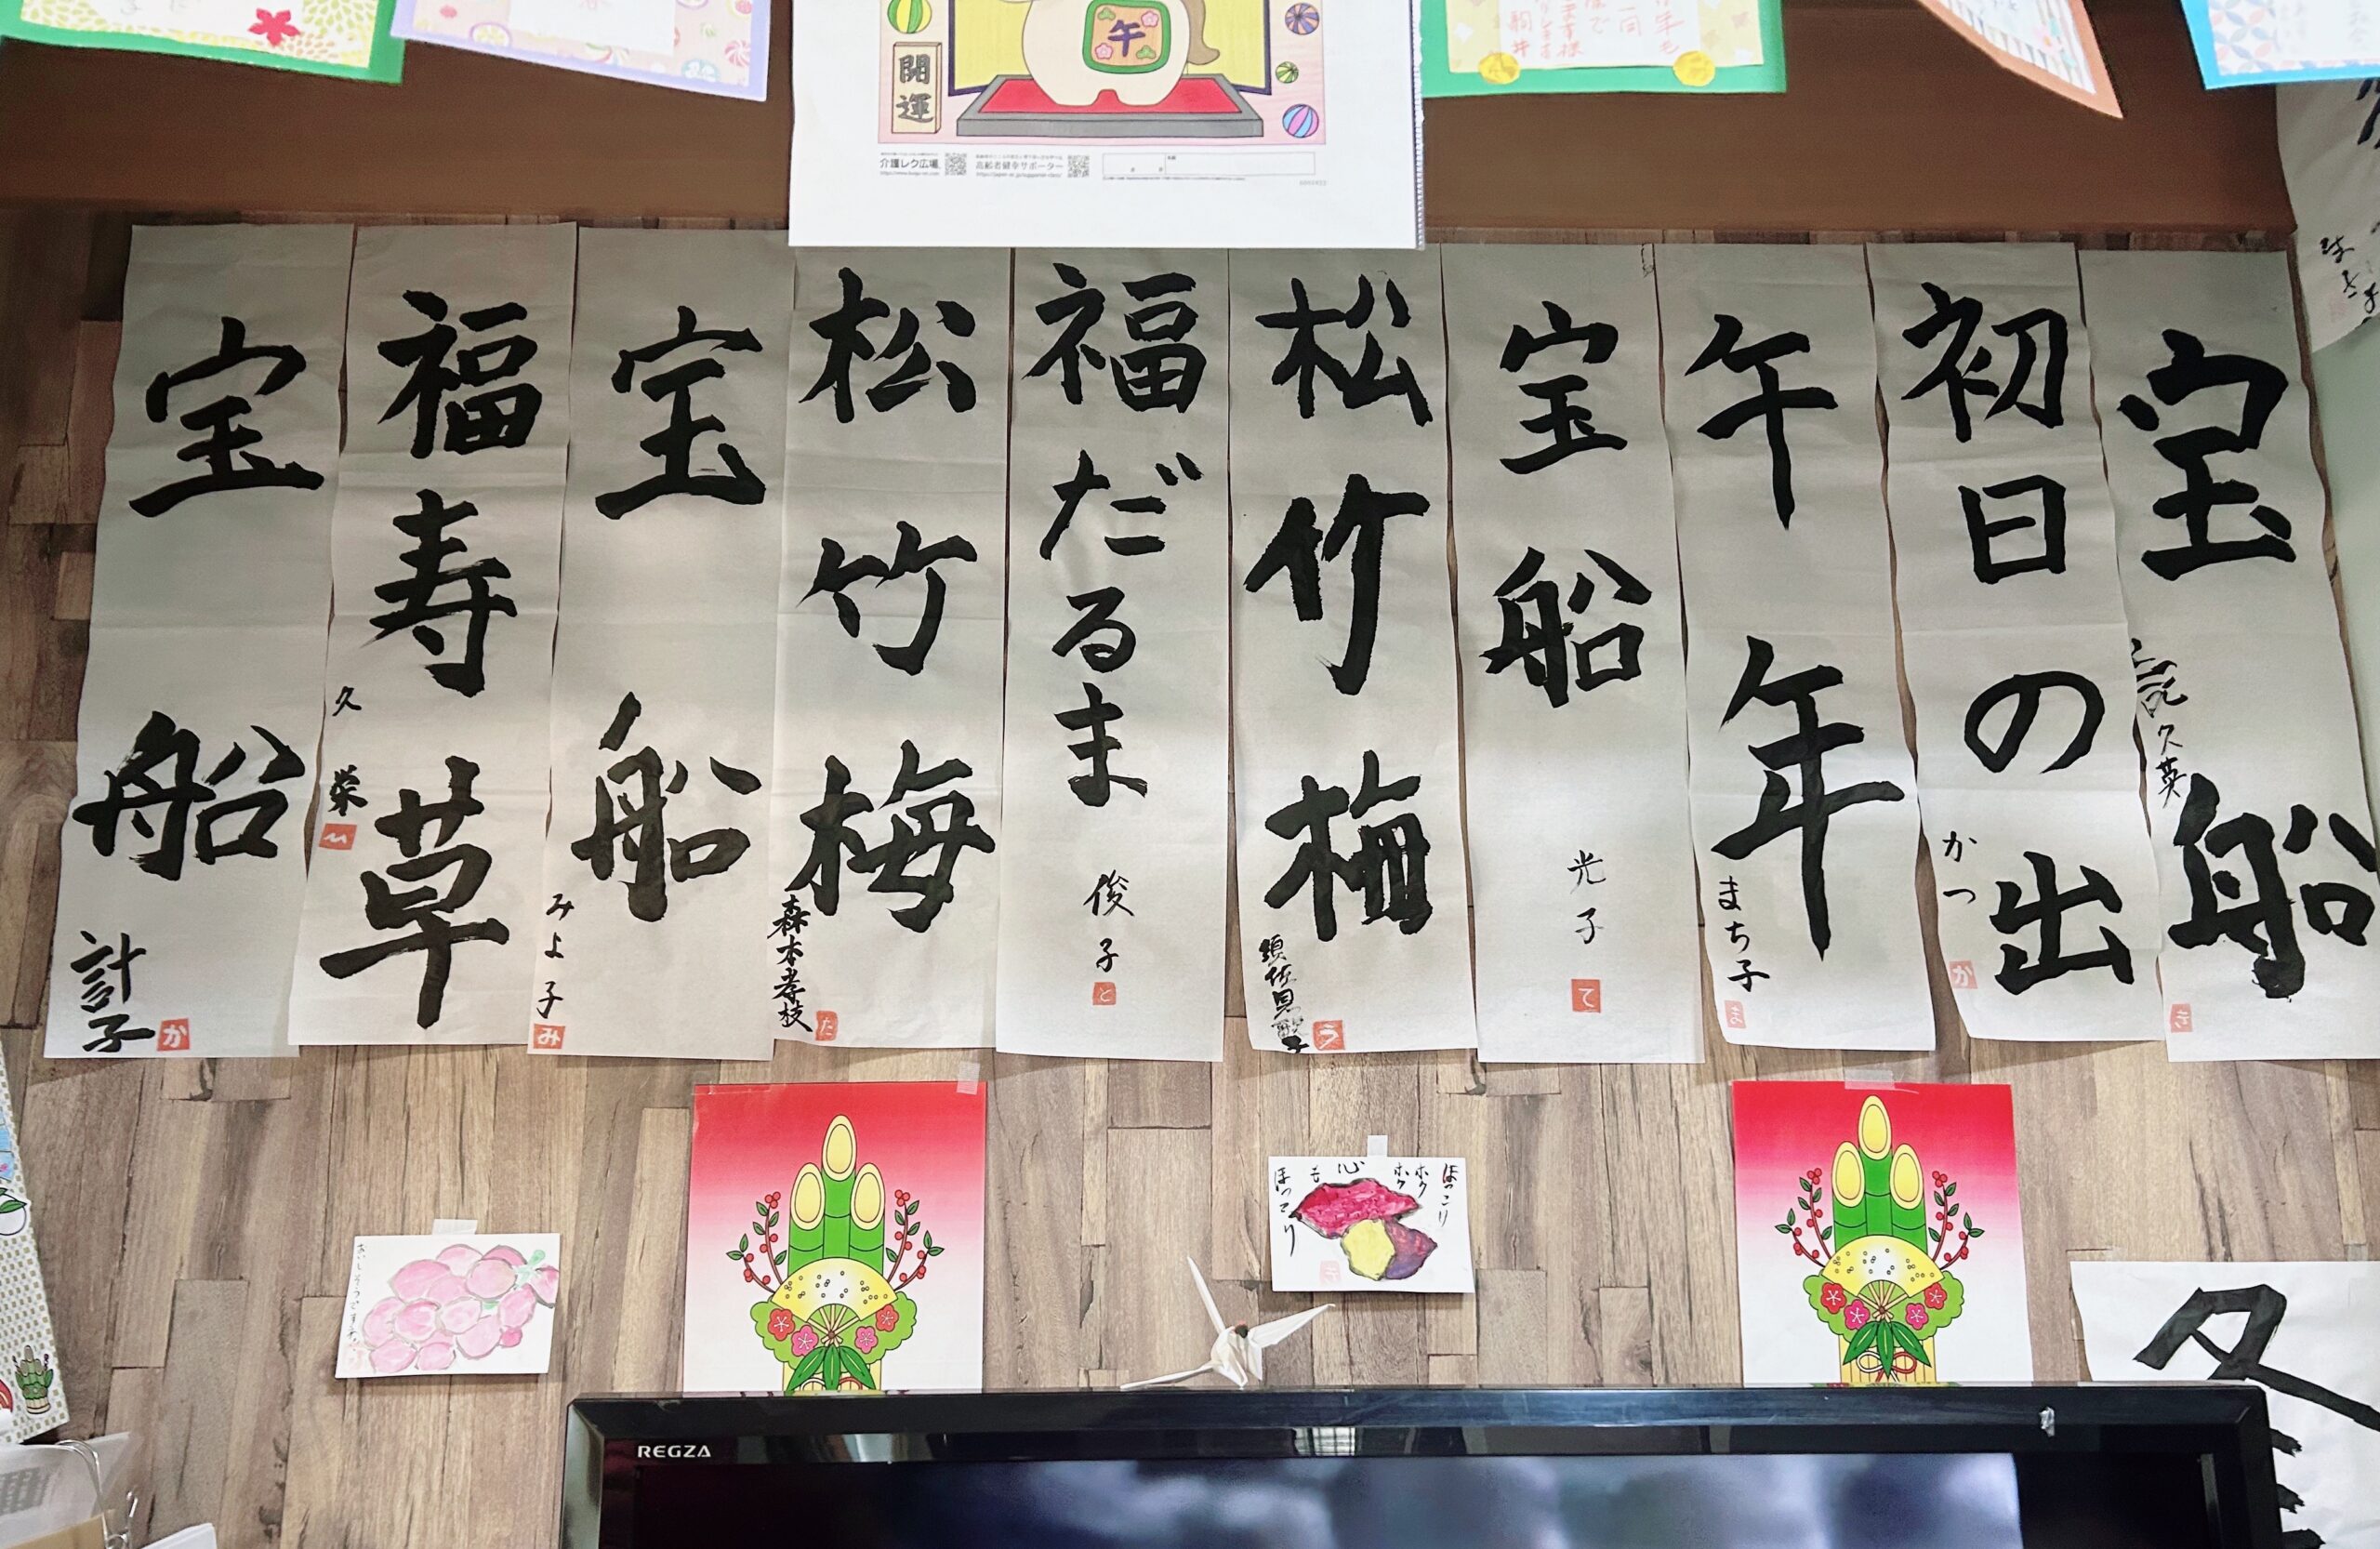 午
開運
介護レク広場
高齢者健幸サポーター
宝船
久英
初日の出
かつ
か
午年
まち子
ま
宝船
光子
て
松竹梅
う
福だるま
俊子
と
松竹梅
森本孝枝
た
宝船
みよ子
み
福寿草
久栄
宝船
計子
か
ほっこり
ホクホク
心も
ほっこり
冬
REGZA